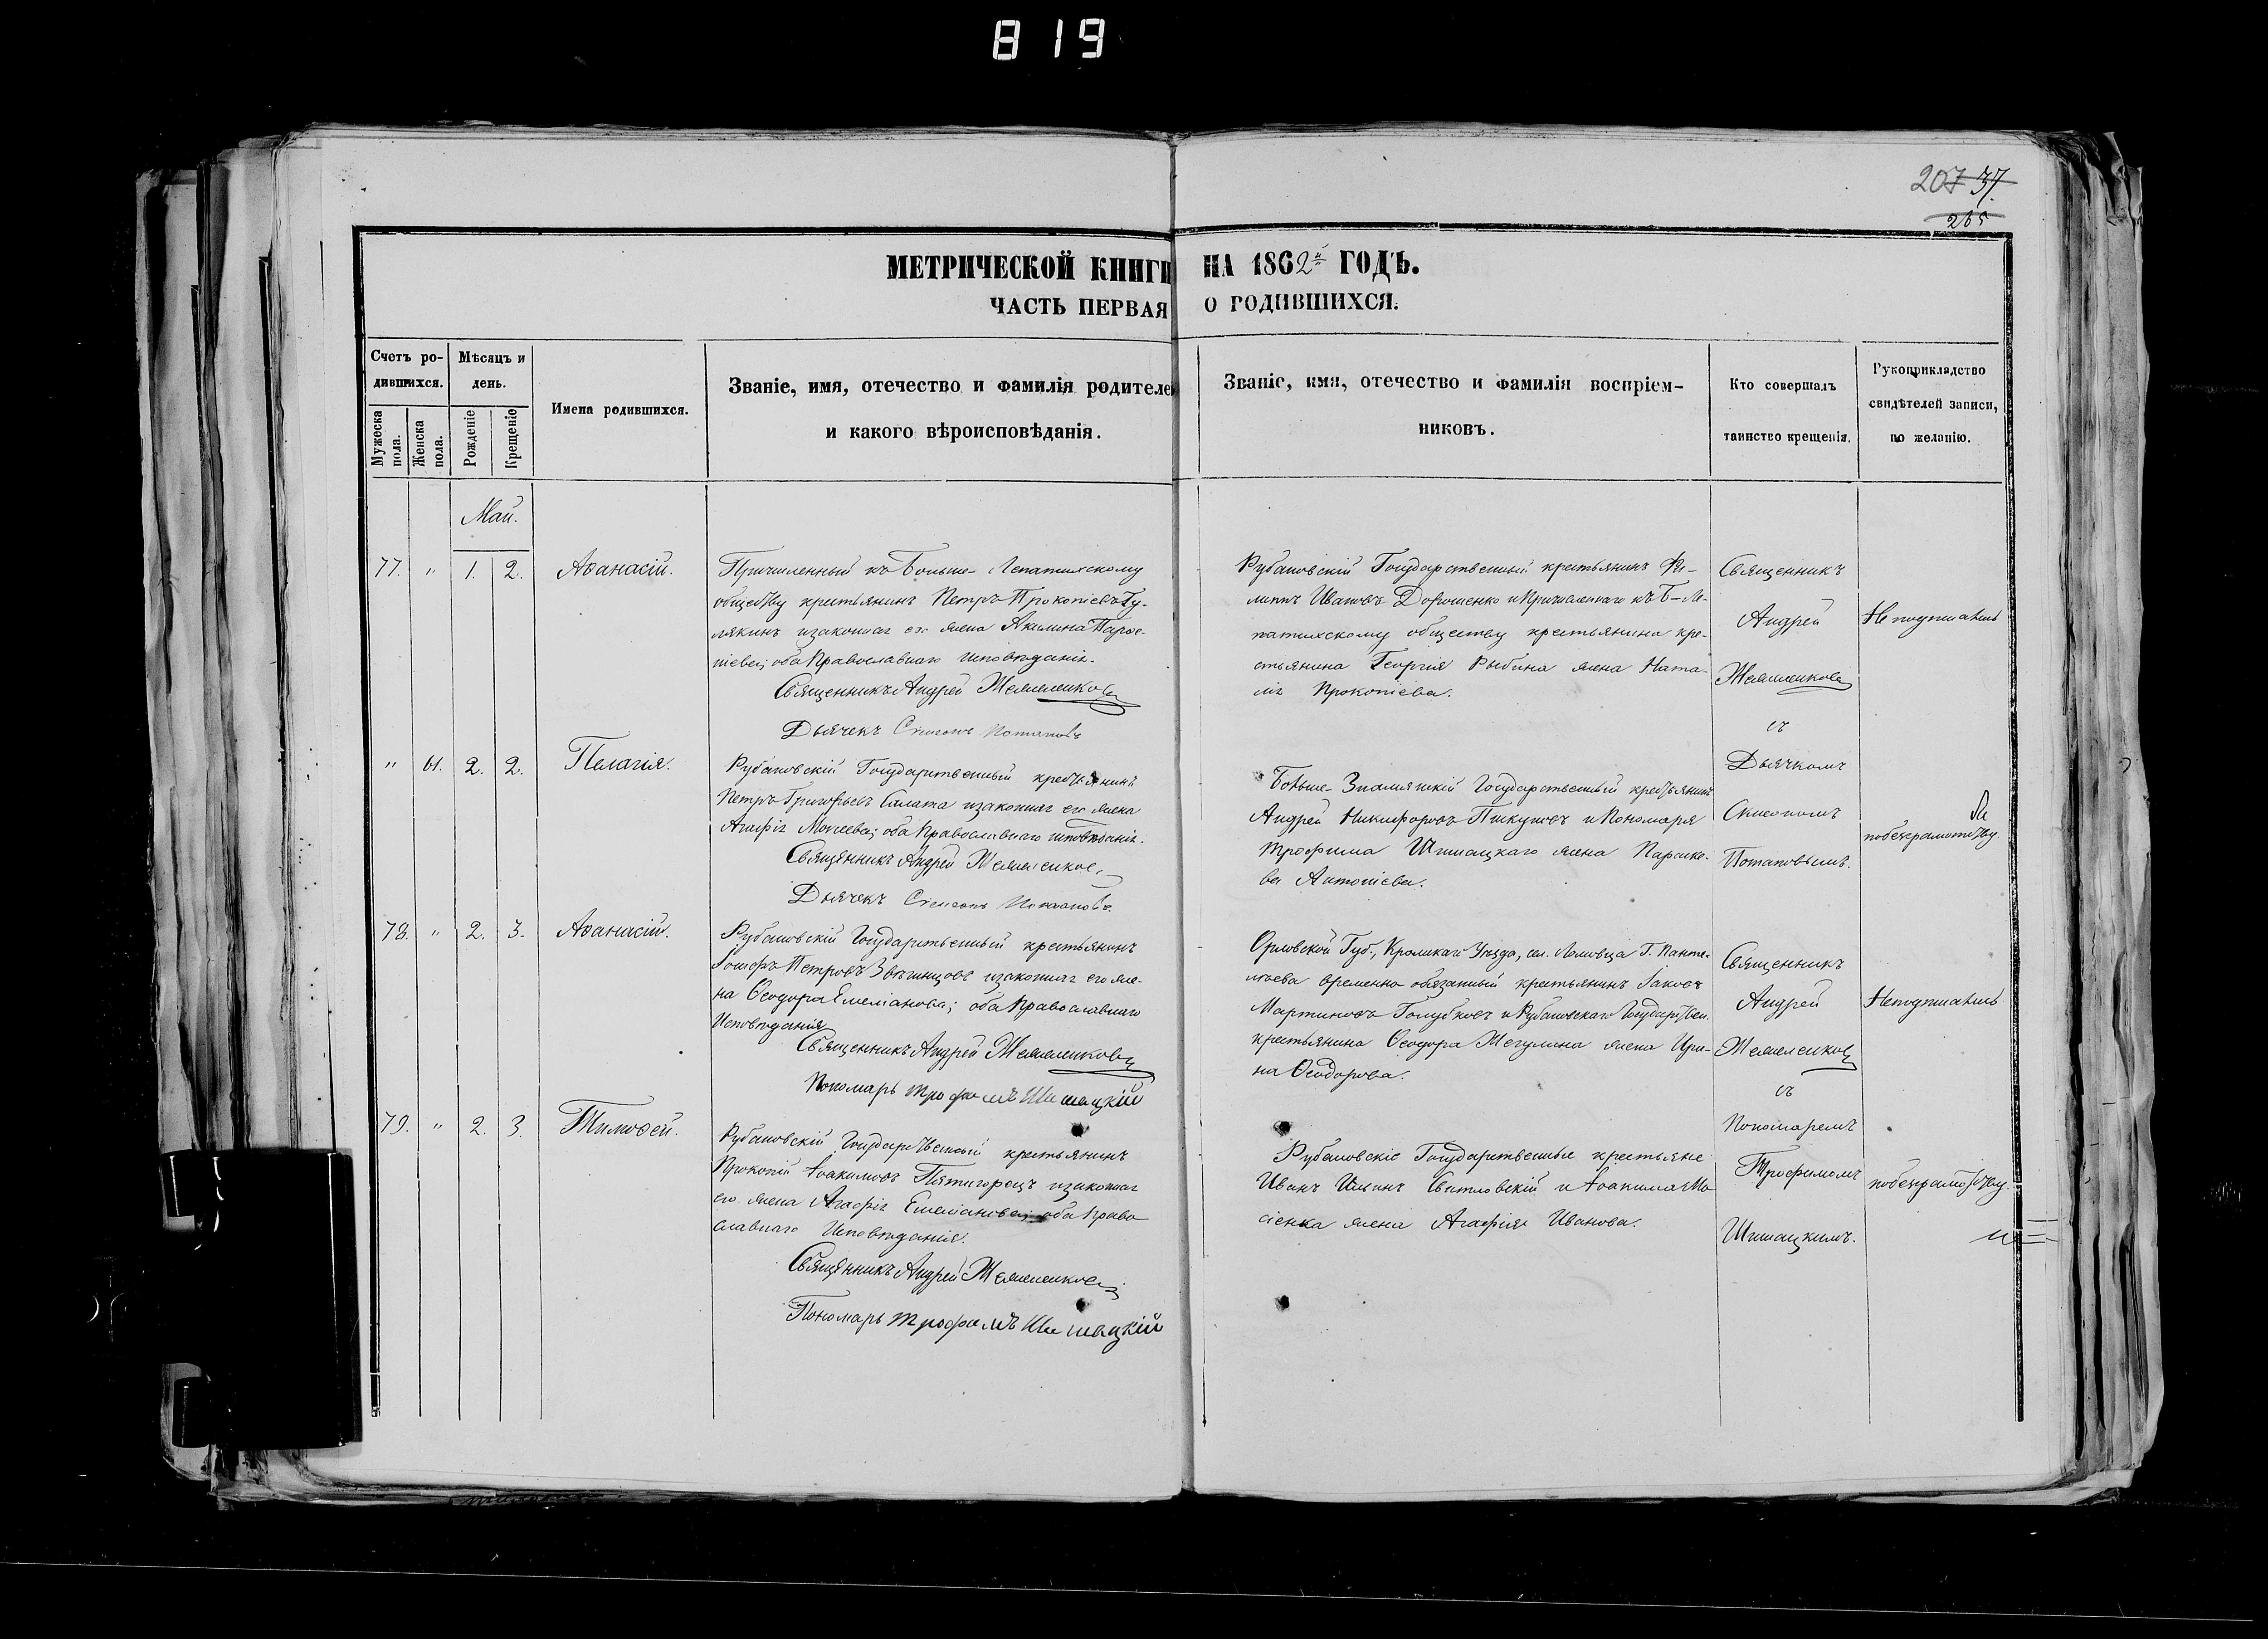 819
207 37.
265
МЕТРИЧЕСКОЙ КНИГИ НА 1862й ГОДЪ.
ЧАСТЬ ПЕРВАЯ О РОДИВШИХСЯ.
Счетъ ро-
дившихся.
Мужеска
пола.
Женска
пола.
Мѣсяцъ и
день.
Рожденіе
Крещеніе
Имена родившихся.
Званіе, имя, отечество и фамилія родителей
и какого вѣроисповѣданія.
Званіе, имя, отечество и фамилія воспріем-
никовъ.
Кто совершалъ
таинство крещенія.
Рукоприкладство
свидѣтелей записи,
по желанію.
Май.
77. " 1. 2. Аѳанасій.
Причисленный къ Больше-Лепатихскому
обществу крестьянинъ Петръ Прокопіевъ Гу-
лякинъ и законная его жена Акилина
оба Православнаго Исповѣданія.
Священникъ Андрей
Дьячекъ Симеонъ Потаповъ
Рубановскій Государственный крестьянинъ Фи-
липпъ Ивановъ Дорошенко и Причисленнаго къ Б-Ле-
патихскому обществу крестьянина кре-
стьянина Георгія Рыбина жена Ната-
лія Прокопіева.
Священникъ
Андрей
съ
Дьячкомъ
Симеономъ
Потаповымъ.
Неподписались
по безграмотству.
" 61. 2. 2. Пелагія.
Рубановскій Государственный крестьянинъ
Петръ Григорьевъ Салата и законная его жена
Агафія Моисеева; оба Православнаго исповѣданія.
Священникъ Андрей
Дьячекъ Симеонъ Потаповъ.
Больше-Знаменскій Государственный крестьянинъ
Андрей Никифоровъ и Пономаря
Трофима Шишацкаго жена Параске-
ва Антоніева.
78. " 2. 3. Аѳанасій.
Рубановскій Государственный крестьянинъ
Іосифъ Петровъ Звѣгинцовъ и законная его же-
на Ѳеодора Емеліанова; оба Православнаго
Исповѣданія
Священникъ Андрей
Пономарь Трофимъ Шишацкій
Орловской Губ., Уѣзда, сел. Ломовца Г. Панте-
лѣева временно обязанный крестьянинъ Іаковъ
Мартиновъ Голубковъ и Рубановскаго Государствен.
крестьянина Ѳеодора жена Ири-
на Ѳеодорова.
Священникъ
Андрей
съ
Пономаремъ
Трофимомъ
Шишацкимъ.
Неподписались
по безграмотству.
79. " 2. 3. Тимоѳей.
Рубановскій Государственный крестьянинъ
Прокопій Іоакимовъ Пятигорецъ и законная
его жена Агафія Емеліанова; оба Право-
славнаго Исповѣданія.
Священникъ Андрей
Пономарь Трофимъ Шишацкій
Рубановскіе Государственные крестьяне
Иванъ Ильинъ и Іоакима Мо
сіенка жена Агафія Иванова.